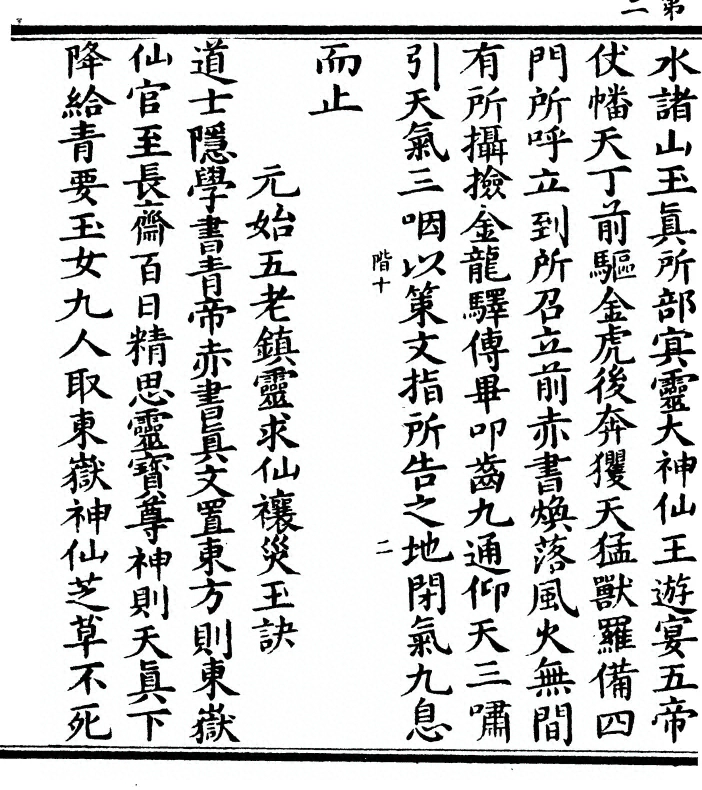 第二
水諸山玉眞所部寘靈大神仙王遊宴五帝
仗幡天丁前驅金虎後奔玃天猛獸羅備四
門所呼立到所召立前赤書煥落風火無間
有所攝撿金龍驛傳畢叩齒九通仰天三嘯
引天氣三咽以策文指所告之地閉氣九息
階十
二
而止
元始五老鎮靈求仙禳災玉訣
道士隱學書青帝赤書眞文置東方則東嶽
仙官至長齋百日精思靈寶尊神則天眞下
降給青要玉女九人取東嶽神仙芝草不死